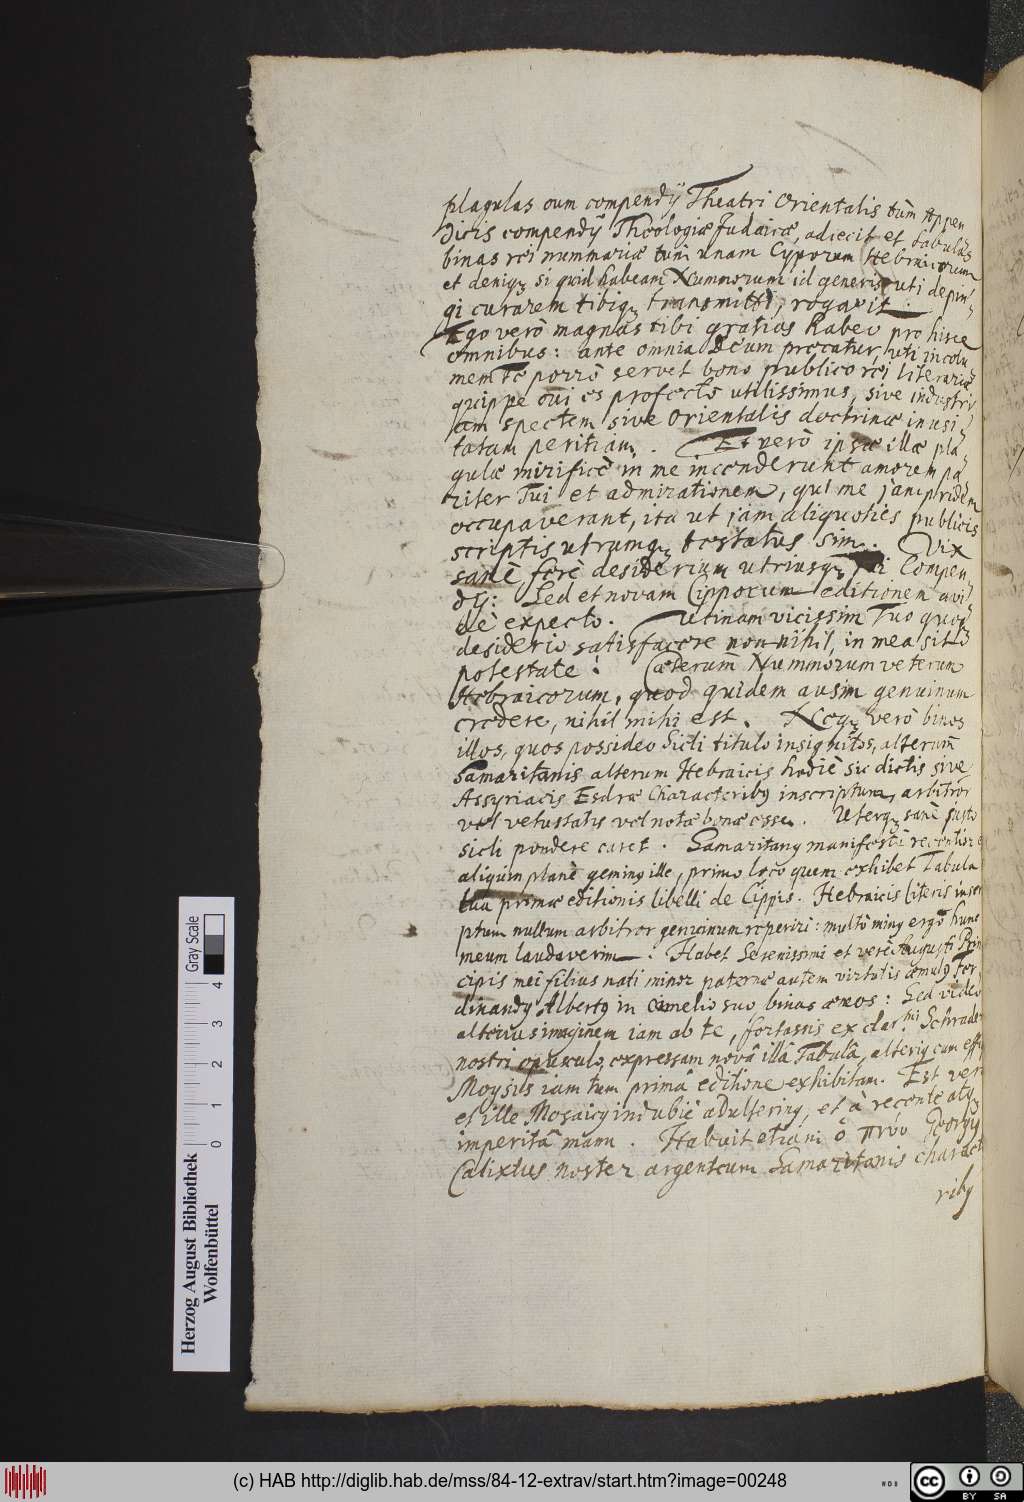 plagulas cum compendij Theatri Orientalis tùm Appen
dicis compendij Theologiæ Judaicæ, adjecit et tabulas
binas rei nummariæ tum unam Cyporum Hebraicorum
et deniqꝫ si quid habeam Nummorum id generis, uti depin-
gi curarem tibiqꝫ transmitti, rogavit.
Ego verò magnas tibi gratias habeo pro hisce
omnibus: ante omnia Deum precatus, uti incolu
mem Te porrò servet bono publico rei literariæ
quippe cui es profectò utilissimus, sive industri
am spectem sive Orientalis doctrinæ inusi-
tatam peritiam. Et verò ipsæ illæ pla-
gulæ mirificè in me incenderunt amorem pa
riter Tui et admirationem, qui me jampridem
occupaverant, ita ut jam aliquoties publicis
scriptis utrumqꝫ testatus sim. Vix
sanè ferè desiderium utriusqꝫ Compen
dij: Sed et novam Cipporum editionem avi-
dè expecto. Utinam vicissim Tuo quoqꝫ
desiderio satisfacere nonnihil, in mea sit
potestate! Cæterum Nummorum veterum
Hebraicorum, quod quidem ausim genuinum
credere, nihil mihi est. Neqꝫ verò binos
illos, quos possideo Sicli titulo insignitos, alterum
Samaritanis alterum Hebraicis hodiè sic dictis sive
Assyriacis Esdræ Characteribꝰ inscriptum, arbitror
vel vetustatis vel notæ bonæ esse. Uterqꝫ sanè justo
sicli pondere caret. Samaritanꝰ manifestè recentior e
aliquin planè geminꝰ ille, primo loco quem exhibet Tabula
tua primæ editionis libelli de Cippis. Hebraicis literis inscri
ptum nullum arbitror genuinum reperiri: multò minꝰ ergò hunc
meum laudaverim. Habet Serenissimi et verè Augusti Prin
cipis mei filius natu minor paternæ autem virtutis æmulꝰ Fer-
dinandꝰ Albertꝰ in cimelio suo binos æneos: Sed video
alterius imaginem iam ab te, fortassis ex clar.mi Schrader
nostri opusculo, expressam novâ illâ Tabulâ, alteriꝰ cum effi
Moysis iam tum primâ editione exhibitam. Est ver
et ille Mosaicꝰ indubiè adulterinꝰ, et à recente atqꝫ
imperitâ manu. Habuit etiam ὁ Georgiꝰ
Calixtus noster argenteum Samaritanis charact
ribꝰ
Herzog August Bibliothek
Wolfenbüttel
0 1 2 3 4
Gray Scale
(c) HAB http://diglib.hab.de/mss/84-12-extrav/start.htm?image=00248
cc BY SA